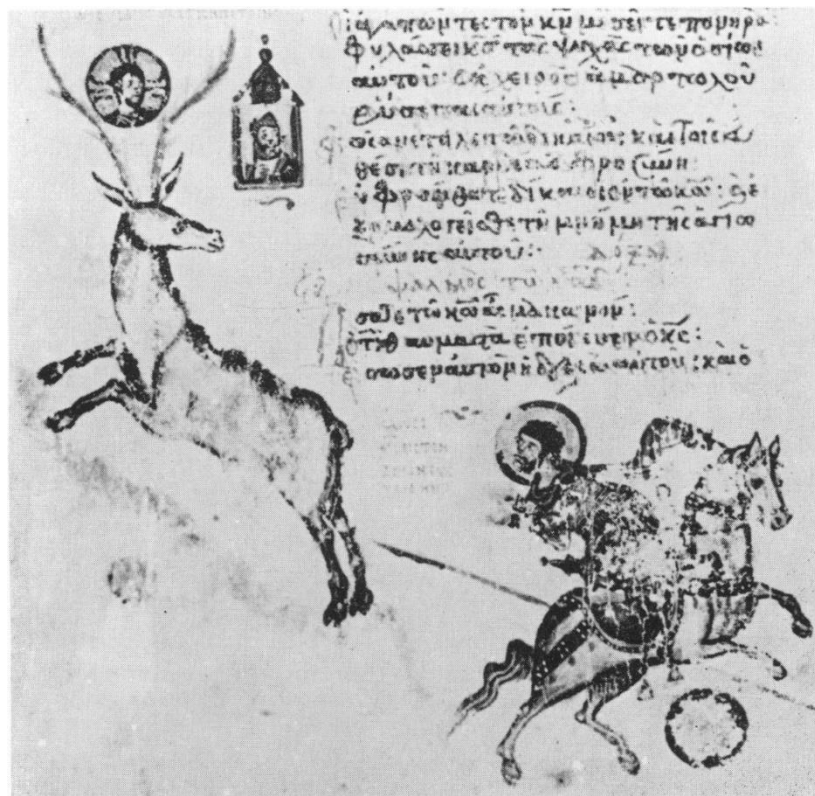 οι αγαπωντες τον κν μισειτε πονηρα
φυλασσει κς τας ψυχας των οσιων
αυτου εκ χειρος αμαρτωλου
ρυσεται αυτους:
φως ανετειλε τω δικαιω: και τοις ευ
θεσι τη καρδια ευφροσυνη
ευφρανθητε δικαιοι εν τω κω: και ε
ξομολογεισθε τη μνημη της αγιω
συνης αυτου: ΔΟΞΑ
ψαλμος τω δαδ
ασατε τω κω ασμα καινον:
οτι θαυμαστα εποιησεν ο κς:
εσωσεν αυτον η δεξια αυτου: και ο